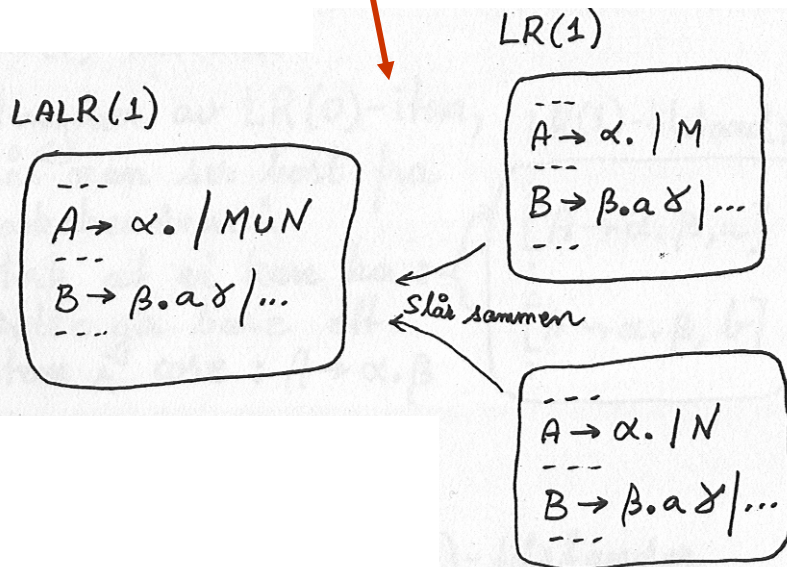 LR(1)
LALR(1)
---
A → α. / M
---
B → β.a γ | ...
---
---
A → α. / M∪N
---
B → β.a γ | ...
----
Slår sammen
---
A → α. / N
---
B → β.a γ | ...
---